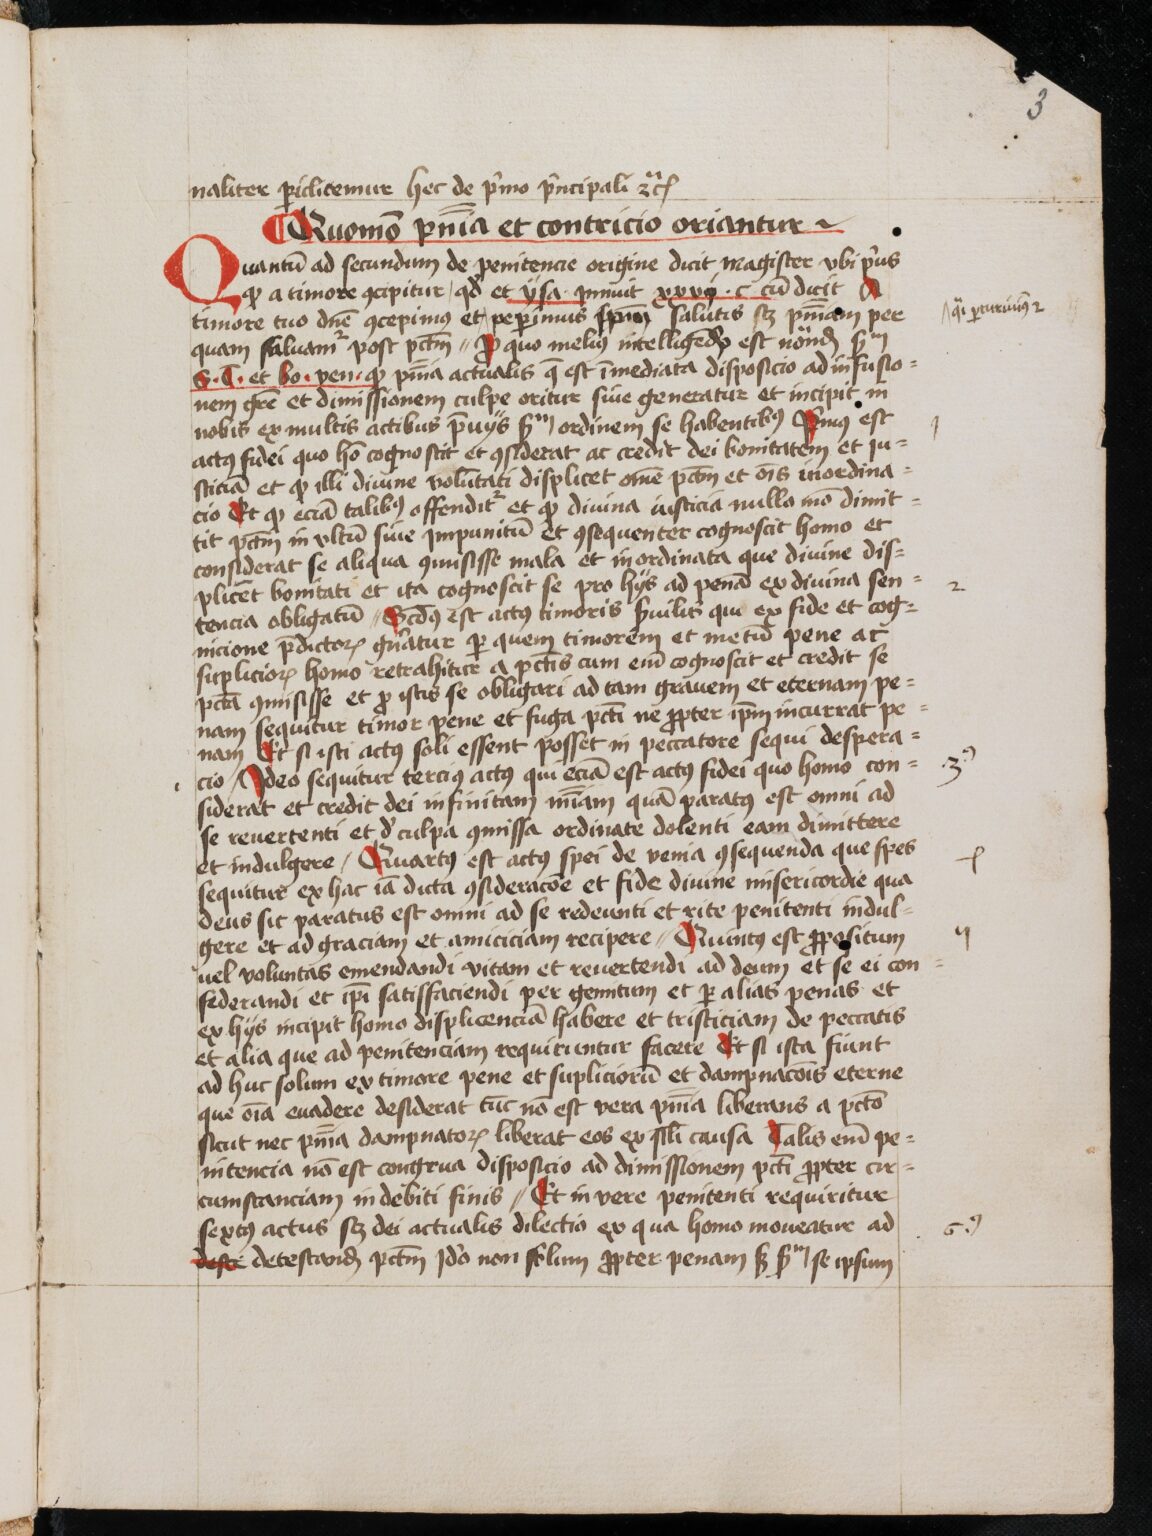 3
naliter periclitemur hec de pͥmo pͥncipali ⁊cͣ
¶ Quomō pn̄ia et contricio oriantur ~
Quantū ad secundum de penitencie origine dicit magister vbi pͥus
ꝙ a timore ꝯcipitur qd̓ et ysa. innuit xxvj. c cū dicit A
timore tuo dn̄e ꝯcepimꝰ et peperimus spm̄ salutis sꝫ pn̄iam per
quam saluamͬ post pctm̄ // Pro quo meliꝰ intelligēdo est notand̓ sm̄
S. T. et bo. ven. ꝙ pn̄ia actualis q̄ est īmediata disposicio ad infusio-
nem grē et dimissionem culpe oritur siue generatur et incipit in
nobis ex multis actibus p̄uijs sm̄ ordinem se habentibꝰ Pͥmꝰ est
1
actꝰ fidei quo hō cognoscit et ꝯsiderat ac credit dei bonitatem et iu-
sticiā et ꝙ illi diuine volūtati displicet om̄e pctm̄ et oīs inordina-
cio Et ꝙ eciā talibꝰ offenditͬ et ꝙ diuina iusticia nullo mō dimit-
tit pctm̄ inultū siue impunitū et ꝯsequenter cognoscit homo et
considerat se aliqua ꝯmisisse mala et inordinata que diuine dis-
plicēt bonitati et ita cognoscit se pro hijs ad penā ex diuina sen-
2
tencia obligatū // Scd̓ꝰ est actꝰ timoris s̓uilis qui ex fide et cog-
nicione p̄dictoꝝ gn̄atur ꝑ quem timorem et metū pene ac
suplicioꝝ homo retrahitur a pctīs cum eīn cognoscit et credit se
pctā ꝯmisisse et ꝓ istis se obligari ad tam grauem et eternam pe-
nam sequitur timor pene et fuga pctī ne ꝓpter ip̄m incurrat pe-
nam Et si isti actꝰ soli essent posset in peccatore sequi despera-
cio / Ideo sequitur terciꝰ actꝰ qui eciā est actꝰ fidei quo homo con-
3ꝰ
siderat et credit dei infinitam mīam quā paratꝰ est omni ad
se reuertenti et d̓ culpa ꝯmissa ordinate dolenti eam dimittere
et indulgere / Quartꝰ est actꝰ spei de venia ꝯsequenda que spes
sequitur ex hac iā dicta ꝯsideracōe et fide diuine misericordie qua
deus sic paratus est omni ad se redeunti et rite penitenti indul-
gere et ad graciam et amiciciam recipere // Quintꝰ est ꝓpositum
vel voluntas emendandi vitam et reuertendi ad deum et se ei con-
federandi et ip̄i satisfaciendi per gemitum et ꝑ alias penas et
ex hijs incipit homo displicenciā habere et tristiciam de peccatis
et alia que ad penitenciam requiruntur facere Et si ista fiunt
ad huc solum ex timore pene et supliciorū et dampnacōis eterne
que oīa euadere desiderat tūc nō est vera pn̄ia liberans a pctō
sicut nec pn̄ia dampnatoꝝ liberat eos ex sili causa Talis eīn pe-
nitencia nō est congrua disposicio ad dimissionem pctī ꝓpter cir-
cumstanciam indebiti finis // Et in vere penitenti requiritur
sextꝰ actus sꝫ dei actualis dilectio ex qua homo moueatur ad
6ꝰ
detestand̓ pctm̄ Id̓o non solum ꝓpter penam sꝫ sm̄ se ipsum